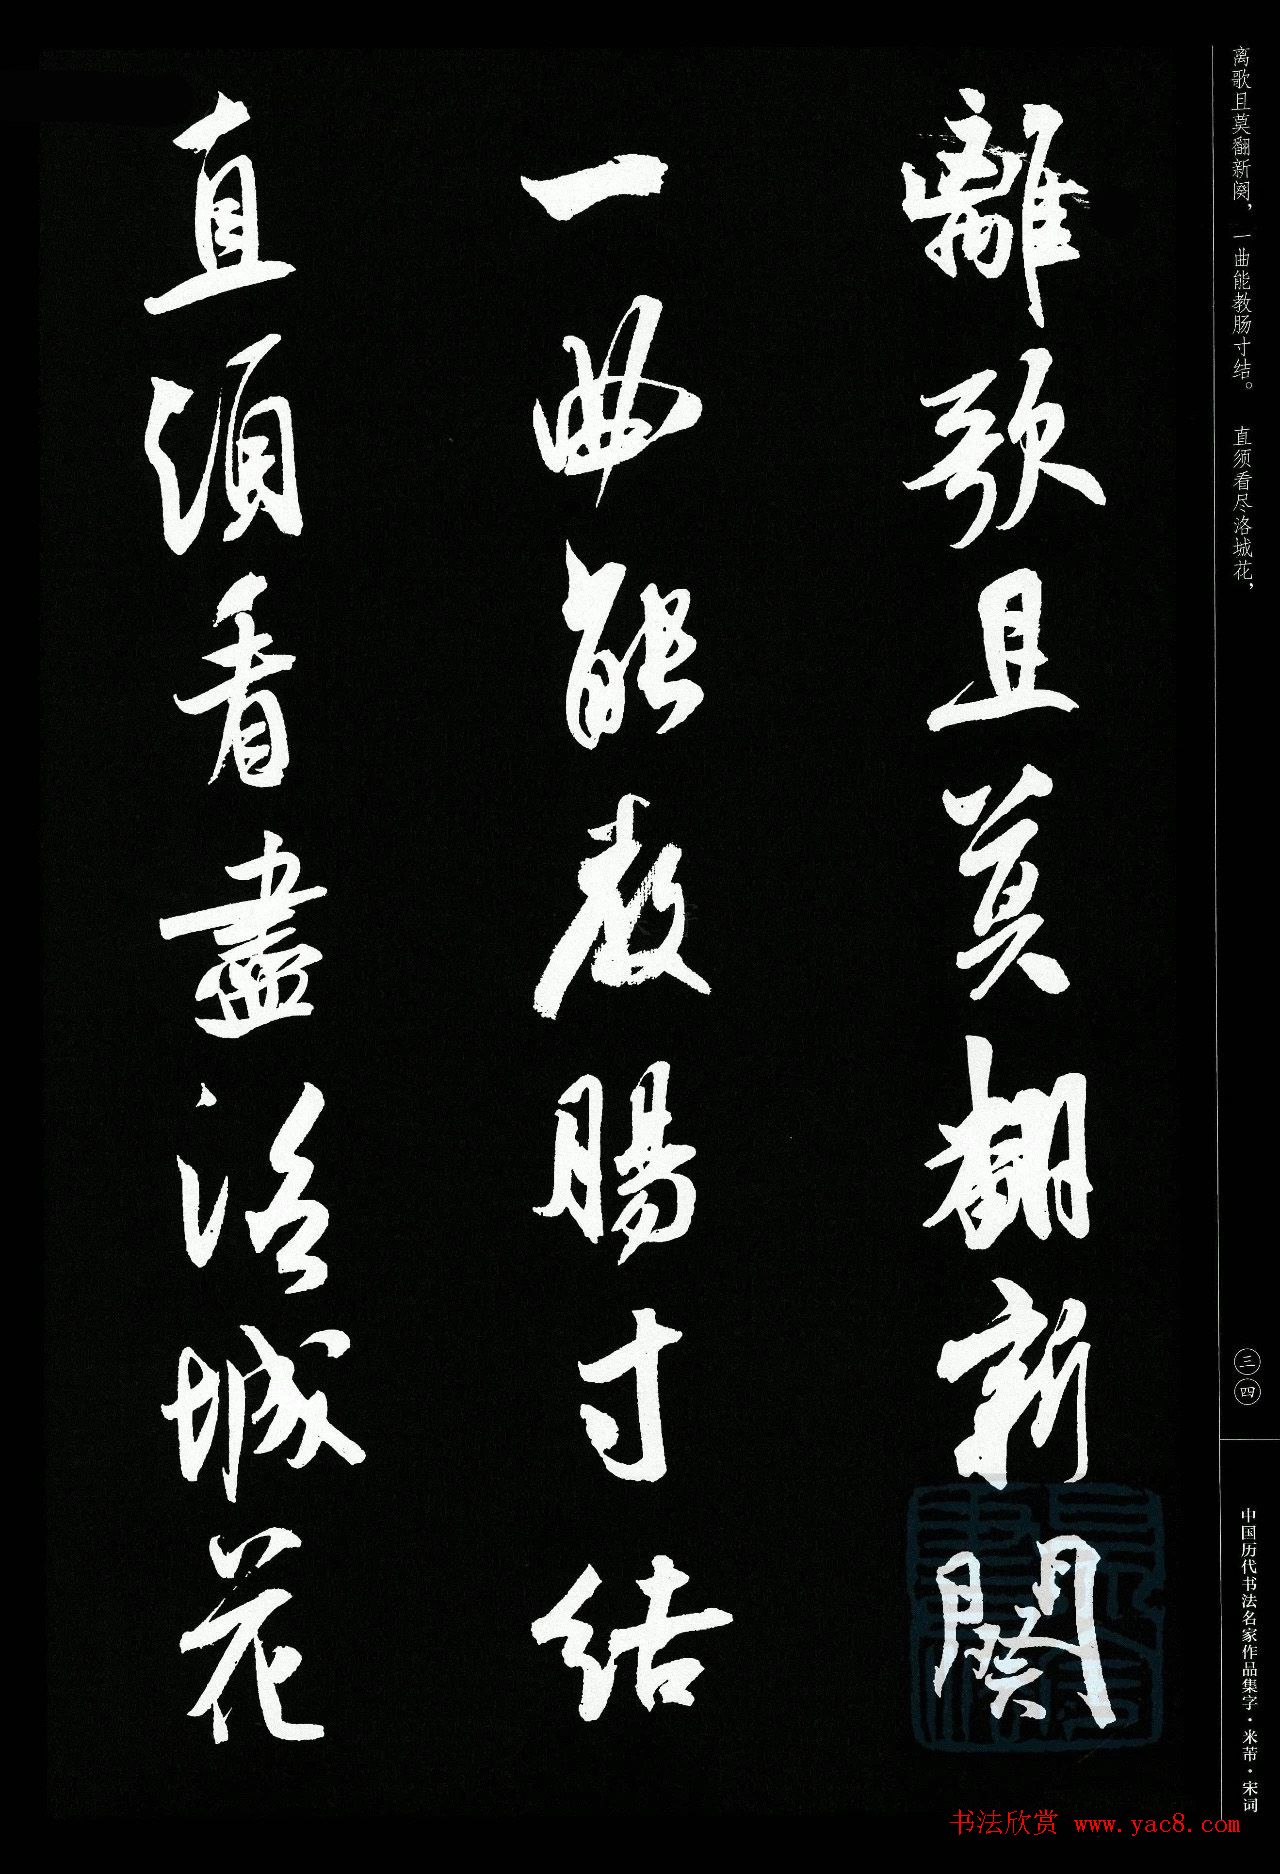 离歌且莫翻新阕，一曲能教肠寸结。 直须看尽洛城花，
離歌且莫翻新闋
一曲能教腸寸结
直須看盡洛城花
三四
中国历代书法名家作品集字·米芾·宋词
书法欣赏 www.yac8.com